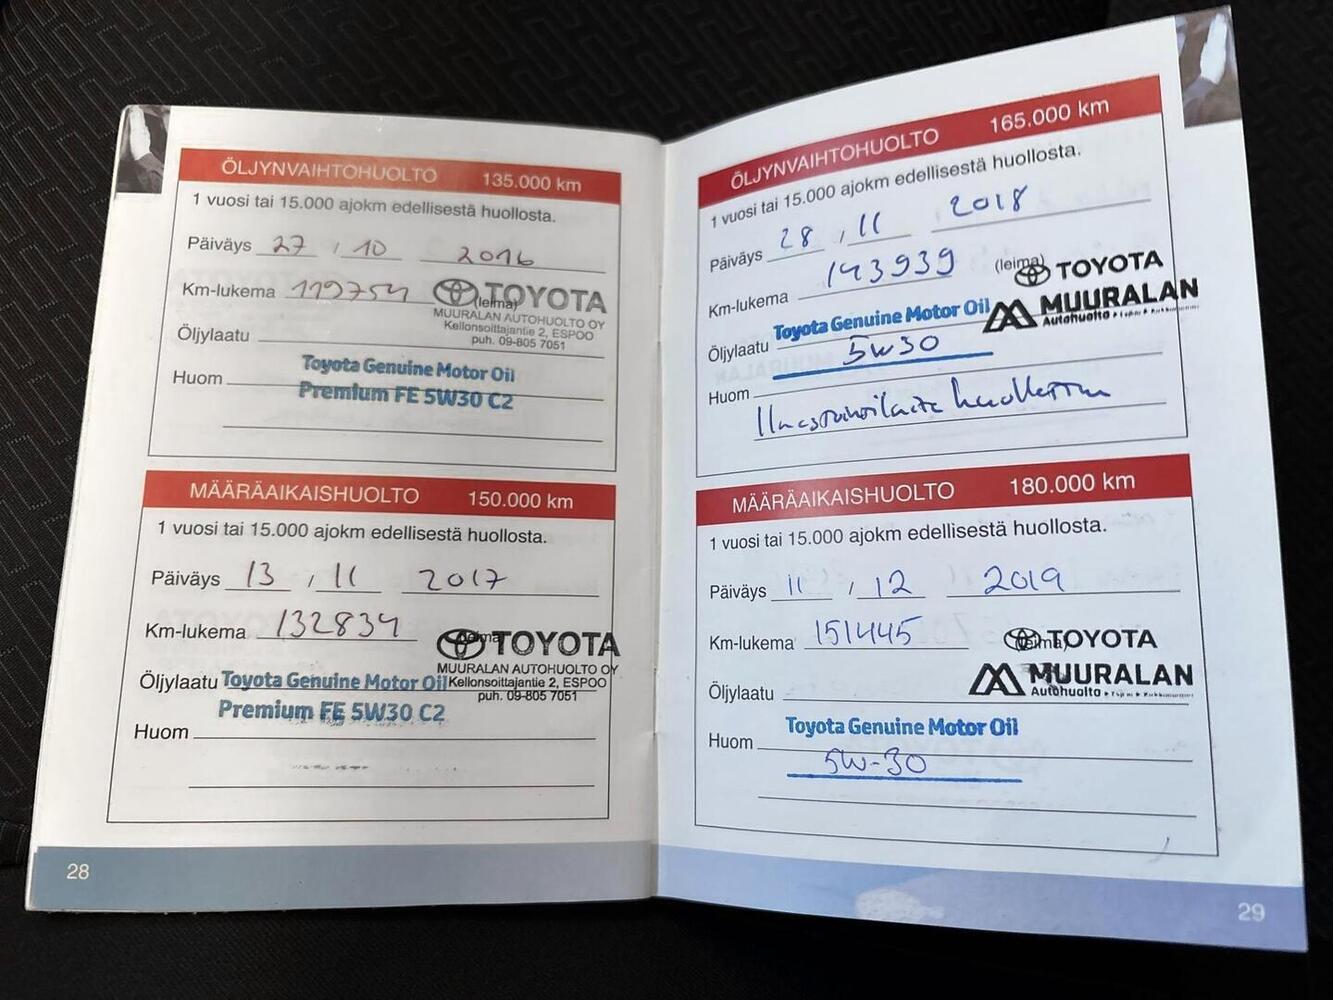 ÖLJYNVAIHTOHUOLTO 135.000 km
1 vuosi tai 15.000 ajokm edellisestä huollosta.
Päiväys 27 , 10 2016
Km-lukema 119754 (leima) TOYOTA
MUURALAN AUTOHUOLTO OY
Kellonsoittajantie 2, ESPOO
puh. 09-805 7051
Öljylaatu
Toyota Genuine Motor Oil
Huom Premium FE 5W30 C2
MÄÄRÄAIKAISHUOLTO 150.000 km
1 vuosi tai 15.000 ajokm edellisestä huollosta.
Päiväys 13 , 11 2017
Km-lukema 132834 (leima) TOYOTA
MUURALAN AUTOHUOLTO OY
Öljylaatu Toyota Genuine Motor Oil Kellonsoittajantie 2, ESPOO
puh. 09-805 7051
Premium FE 5W30 C2
Huom
28
ÖLJYNVAIHTOHUOLTO 165.000 km
1 vuosi tai 15.000 ajokm edellisestä huollosta.
Päiväys 28 , 11 2018
Km-lukema 143939 (leima) TOYOTA
MUURALAN
Autohuolto
Öljylaatu Toyota Genuine Motor Oil
5W30
Huom
Ilmastointilaite huollettu
MÄÄRÄAIKAISHUOLTO 180.000 km
1 vuosi tai 15.000 ajokm edellisestä huollosta.
Päiväys 11 , 12 2019
Km-lukema 151445 (leima) TOYOTA
MUURALAN
Autohuolto
Öljylaatu
Toyota Genuine Motor Oil
Huom 5W-30
29